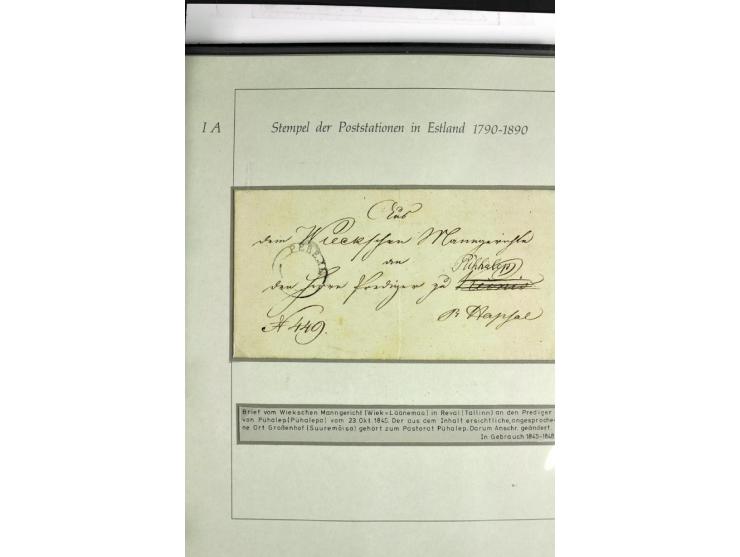 I A
Stempel der Poststationen in Estland 1790-1890
Aus
dem Wieckschen Manngerichte
an Pühhalep
den Herrn Prediger zu
P. Hapsal
№ 449.
Brief vom Wiekschen Manngericht (Wiek=Läänemaa) in Reval (Tallinn) an den Prediger
von Pühalep (Pühalepa) vom 23. Okt. 1845. Der aus dem Inhalt ersichtliche, angesproche-
ne Ort Großenhof (Suuremõisa) gehört zum Pastorat Pühalep. Darum Anschr. geändert.
In Gebrauch 1845-1848